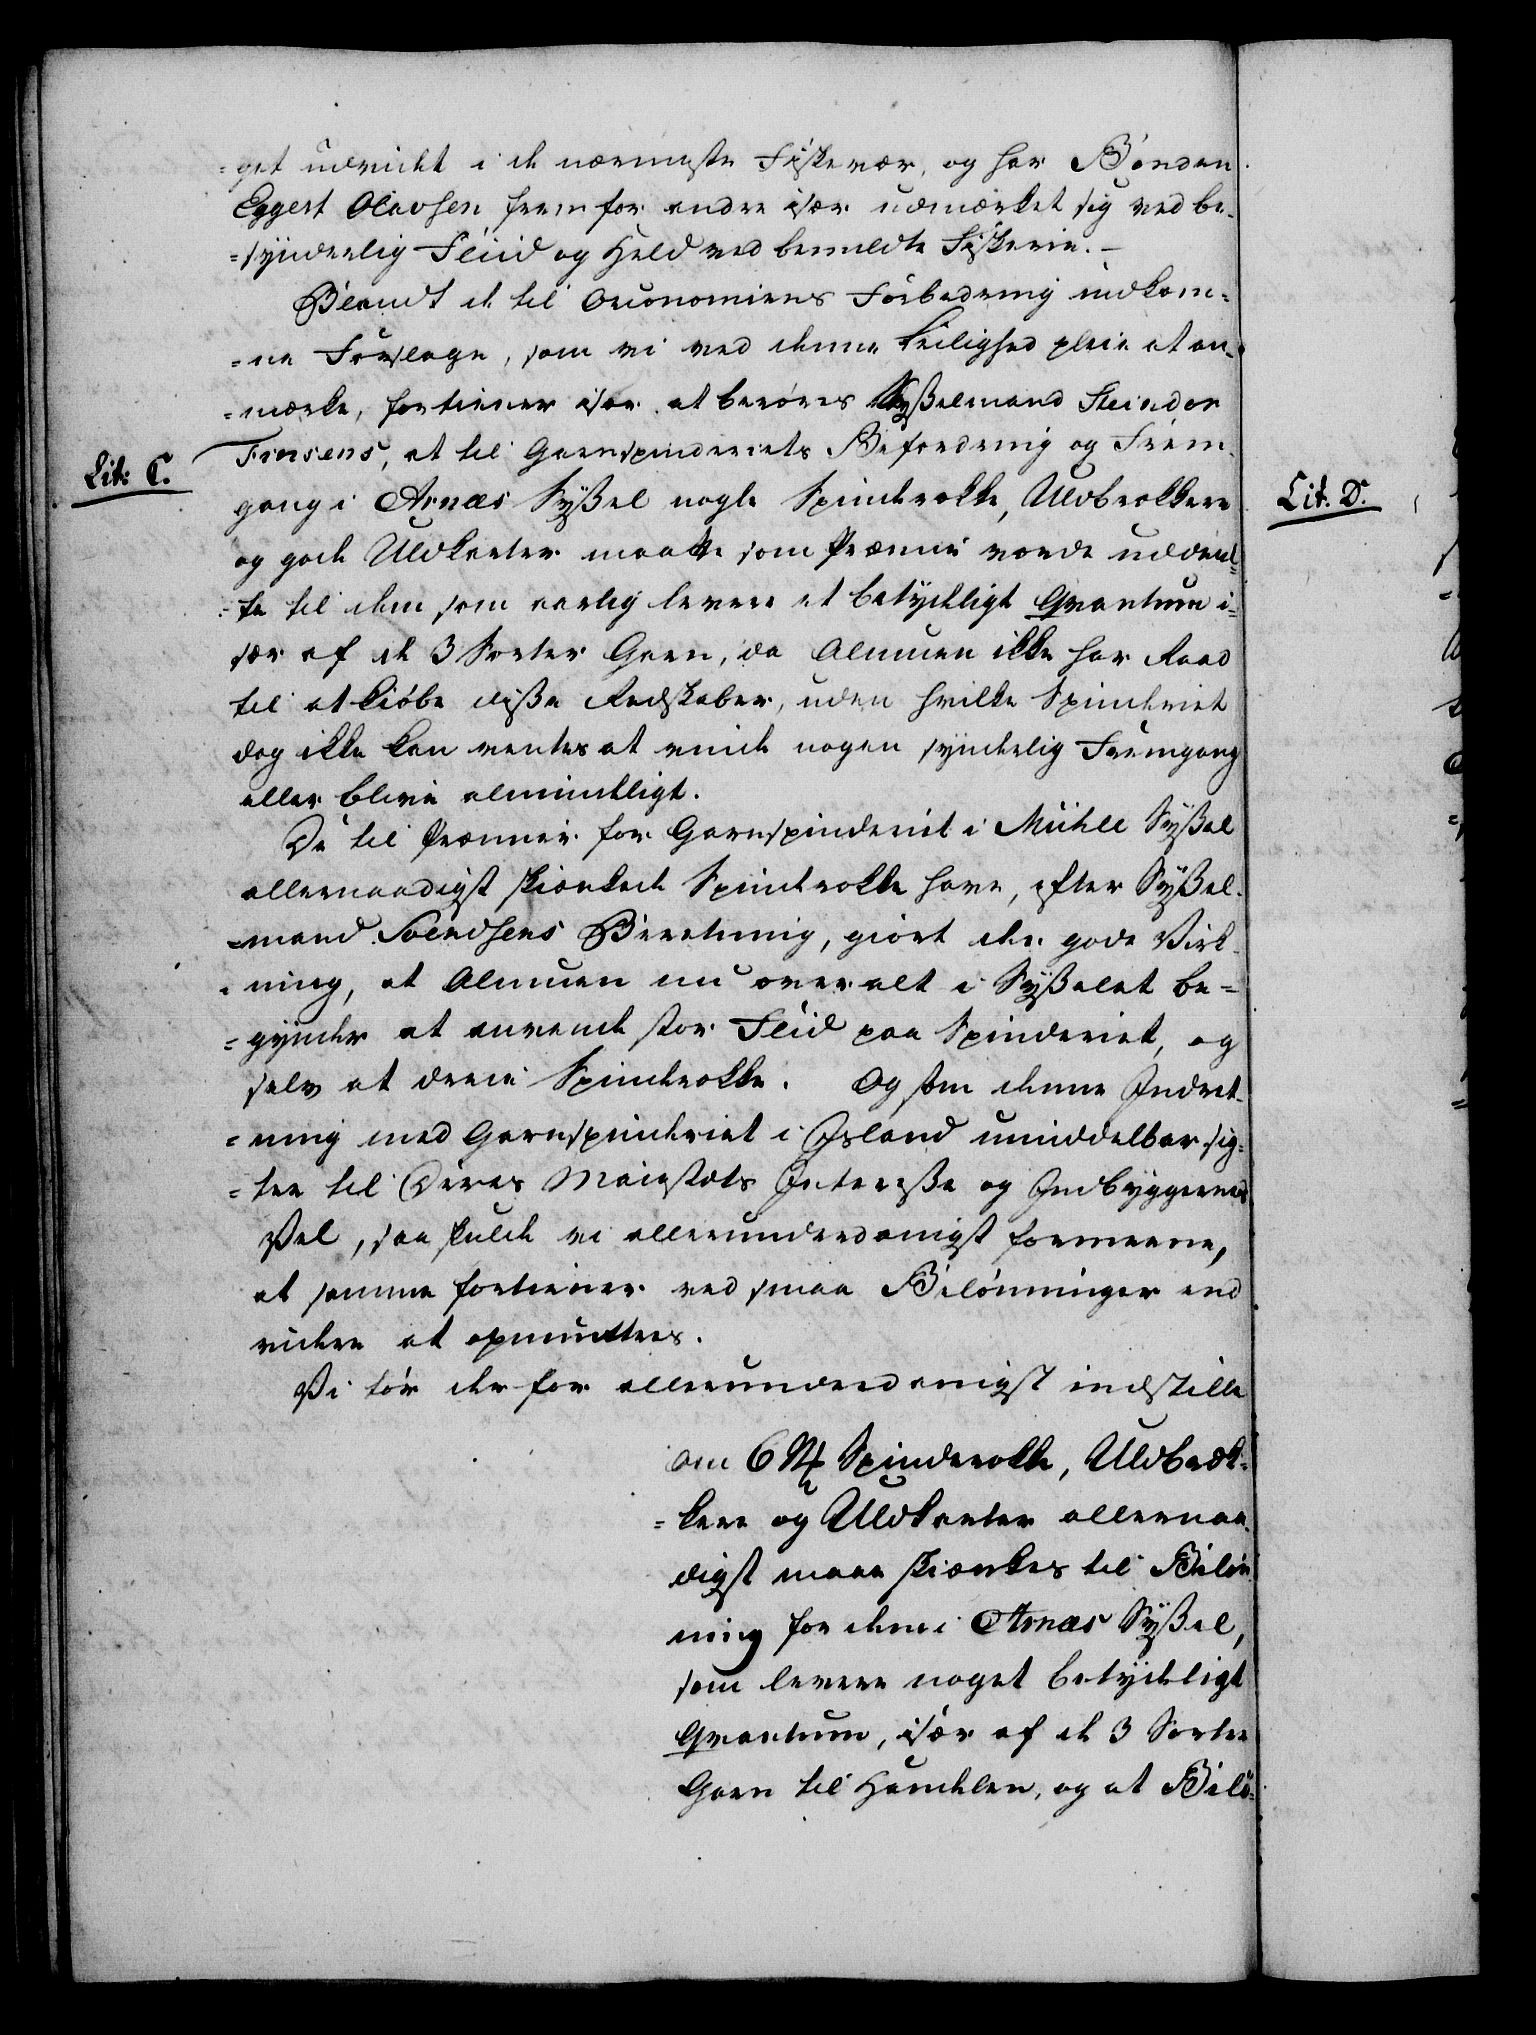 =get udvidet i de nærmeste Fiskevær, og har Bonden
Eggert Olavsen frem for andre især udmærket sig ved be-
=synderlig Fliid og Held ved bemeldte Fiskerie. -
Blandt de til Oeconomiens Forbedring indkom-
=ne Forslage, som vi ved denne Leilighed pleie at an-
=mærke, fortiener især at berøres Sysselmand Steindor
Finsens, at til Garnspinderiets Befordring og Frem-
Lit: C.
gang i Arnæs Syßel nogle Spinderokke, Uldbrokkere
og gode Uldkarter maatte som Præmier vorde uddeel-
=te til dem som aarlig levere et betydeligt Qvantum i-
sær af de 3 Sorter Garn, da Almuen ikke har Raad
til at kiøbe disse Redskaber, uden hvilke Spinderiet
dog ikke kan ventes at vinde nogen synderlig Fremgang
eller blive almindeligt.
De til Præmier for Garnspinderiet i Mühle Syßel
allernaadigst skienkede Spinderokke have, efter Syßel-
=mand Svendsens Beretning, giort den gode Virk-
=ning, at Almuen nu overalt i Syßelet be-
=gynder at anvende stor Fliid paa Spinderiet, og
selv at dreie Spinderokke. Og som denne Indret-
=ning med Garnspinderiet i Island umiddelbar sig-
=ter til Deres Maiestæts Interesse og Indbyggernes
Vel, saa skulde vi allerunderdanigst formeene,
at samme fortiener ved smaa Belønninger end
videre at opmuntres.
Vi tør derfor allerunderdanigst indstille
om 6 Spinderokke, Uldbrok-
=kere og Uldkarter allernaa-
digst maae skienkes til Beløn-
ning for dem i Arnæs Syßel,
som levere noget betydeligt
Qvantum, især af de 3 Sorter
Garn til Handelen, og at Belø-
Lit. D.